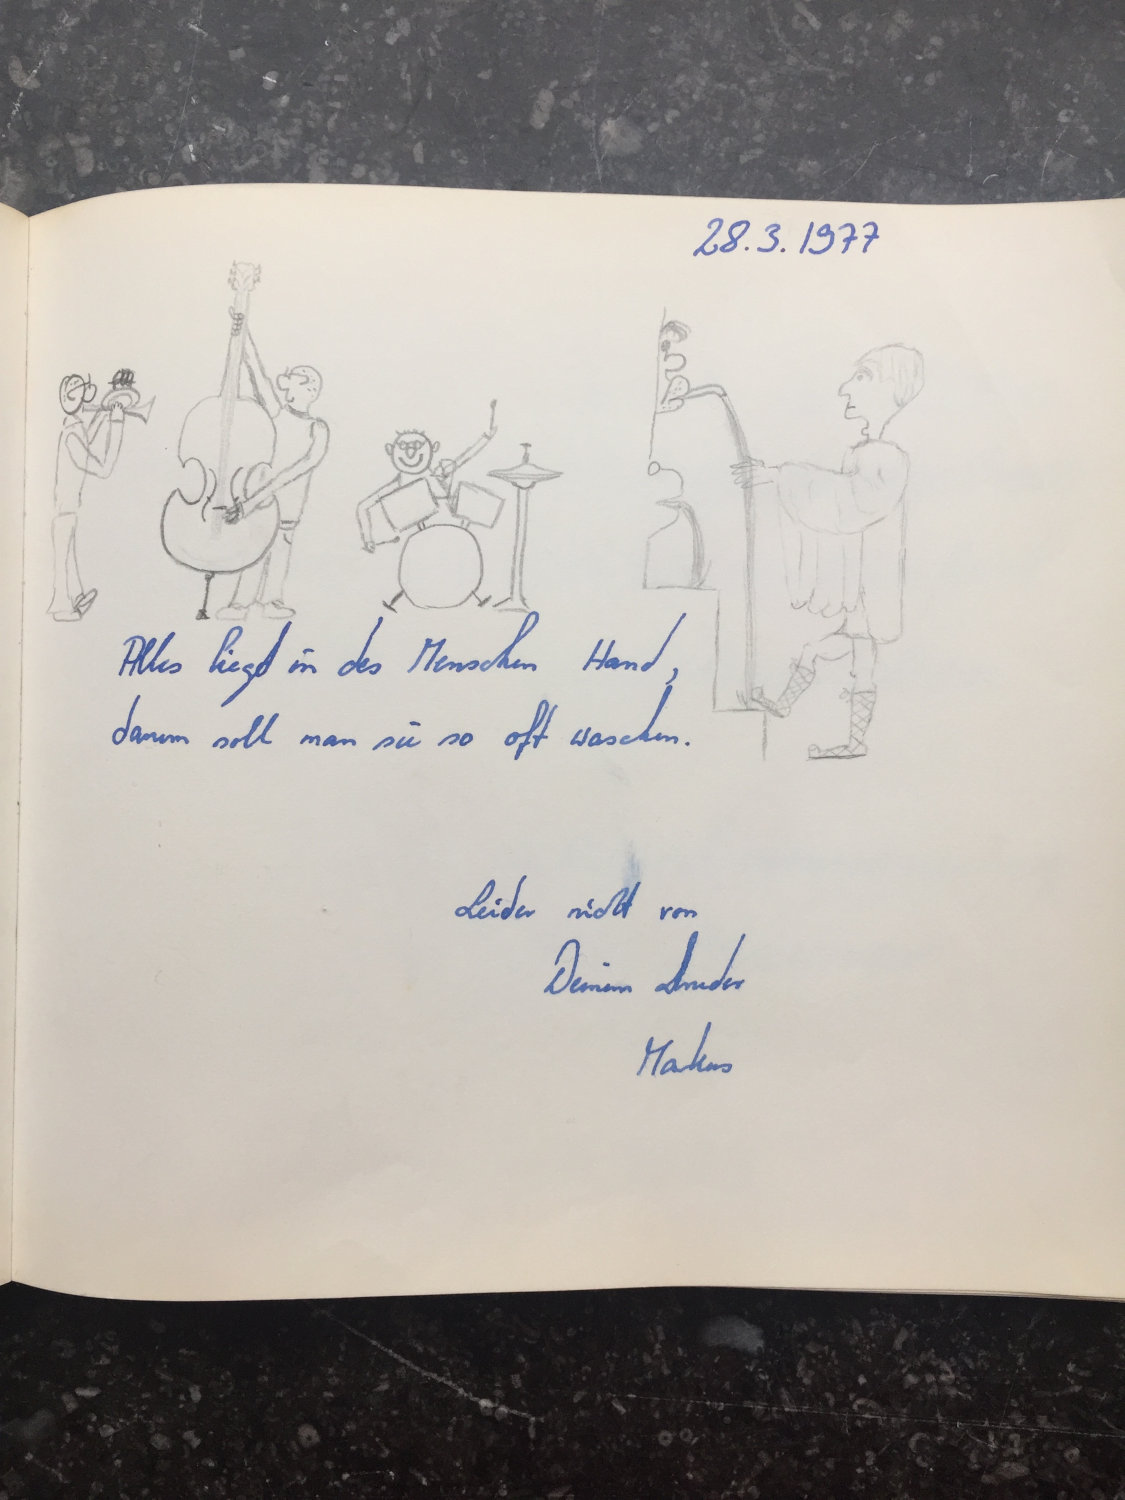 28.3.1977
Alles liegt in des Menschen Hand,
darum soll man sie so oft waschen.
Leider nicht von
Deinem Bruder
Markus